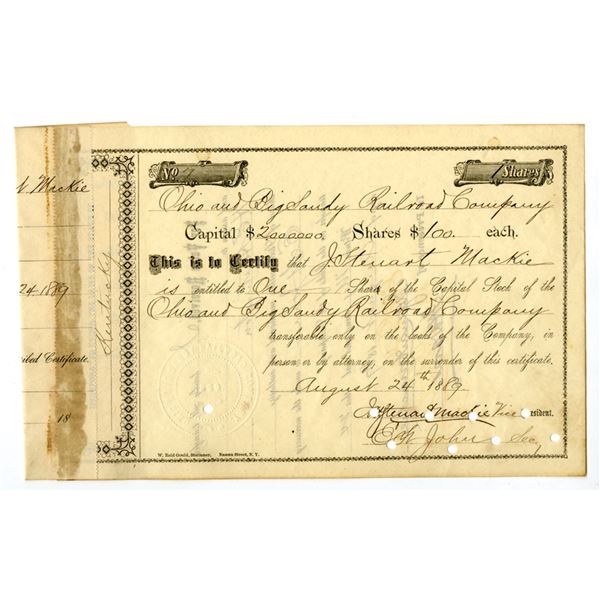 t Mackie
24 1889
ibed Certificate.
18
Kentucky
No 7
1 Shares
Ohio and Big Sandy Railroad Company
Capital $2000000. Shares $100. each.
This is to Certify that J. Steuart Mackie
is entitled to One Share of the Capital Stock of the
Ohio and Big Sandy Railroad Company
transferable only on the books of the Company, in
person or by attorney, on the surrender of this certificate.
August 24th 1889
J. Steuart Mackie Vice President.
John Sec
W. Reid Gould, Stationer, Nassau Street, N.Y.